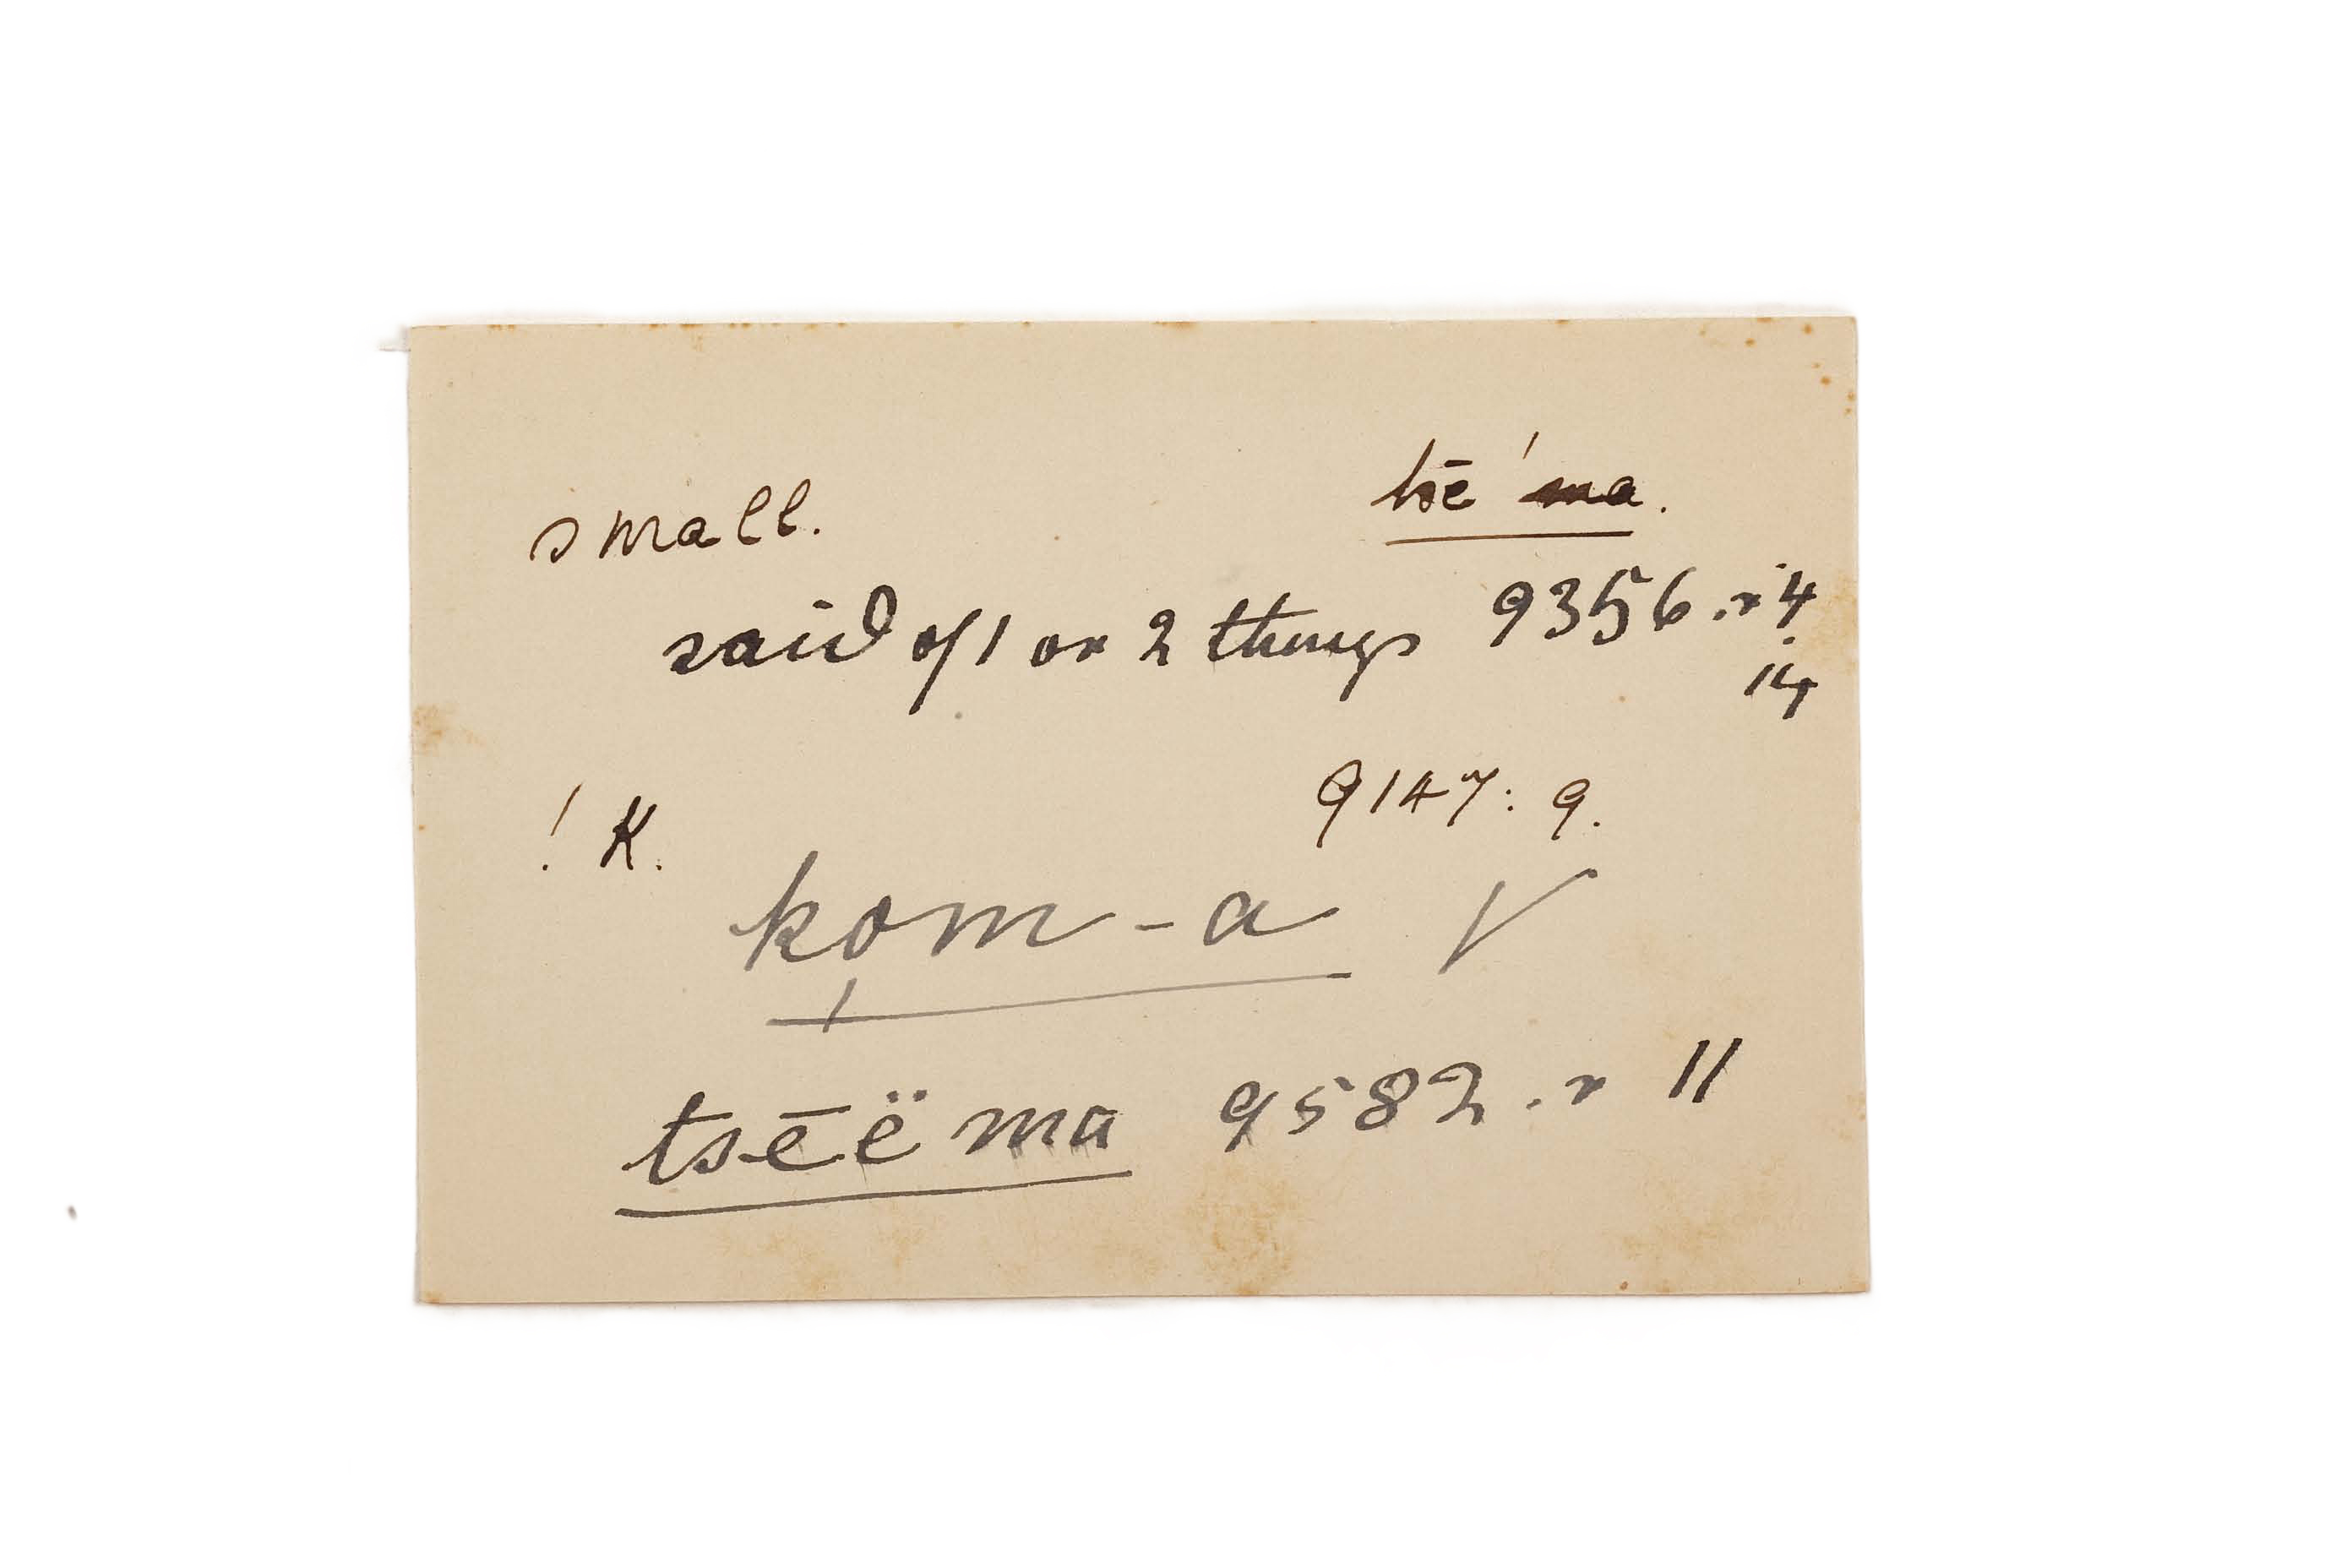 small. tsē'ma.
said of 1 or 2 things 9356. r 4
14
9147: 9.
! K.
ko̦m-a √
tsēë ma 9582. r 11